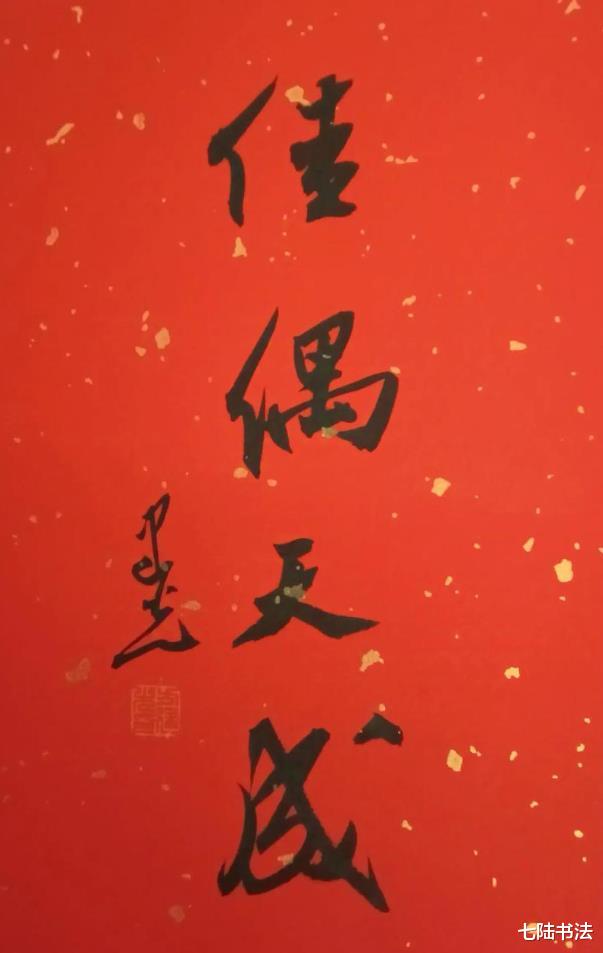 佳偶天成
七陆书法